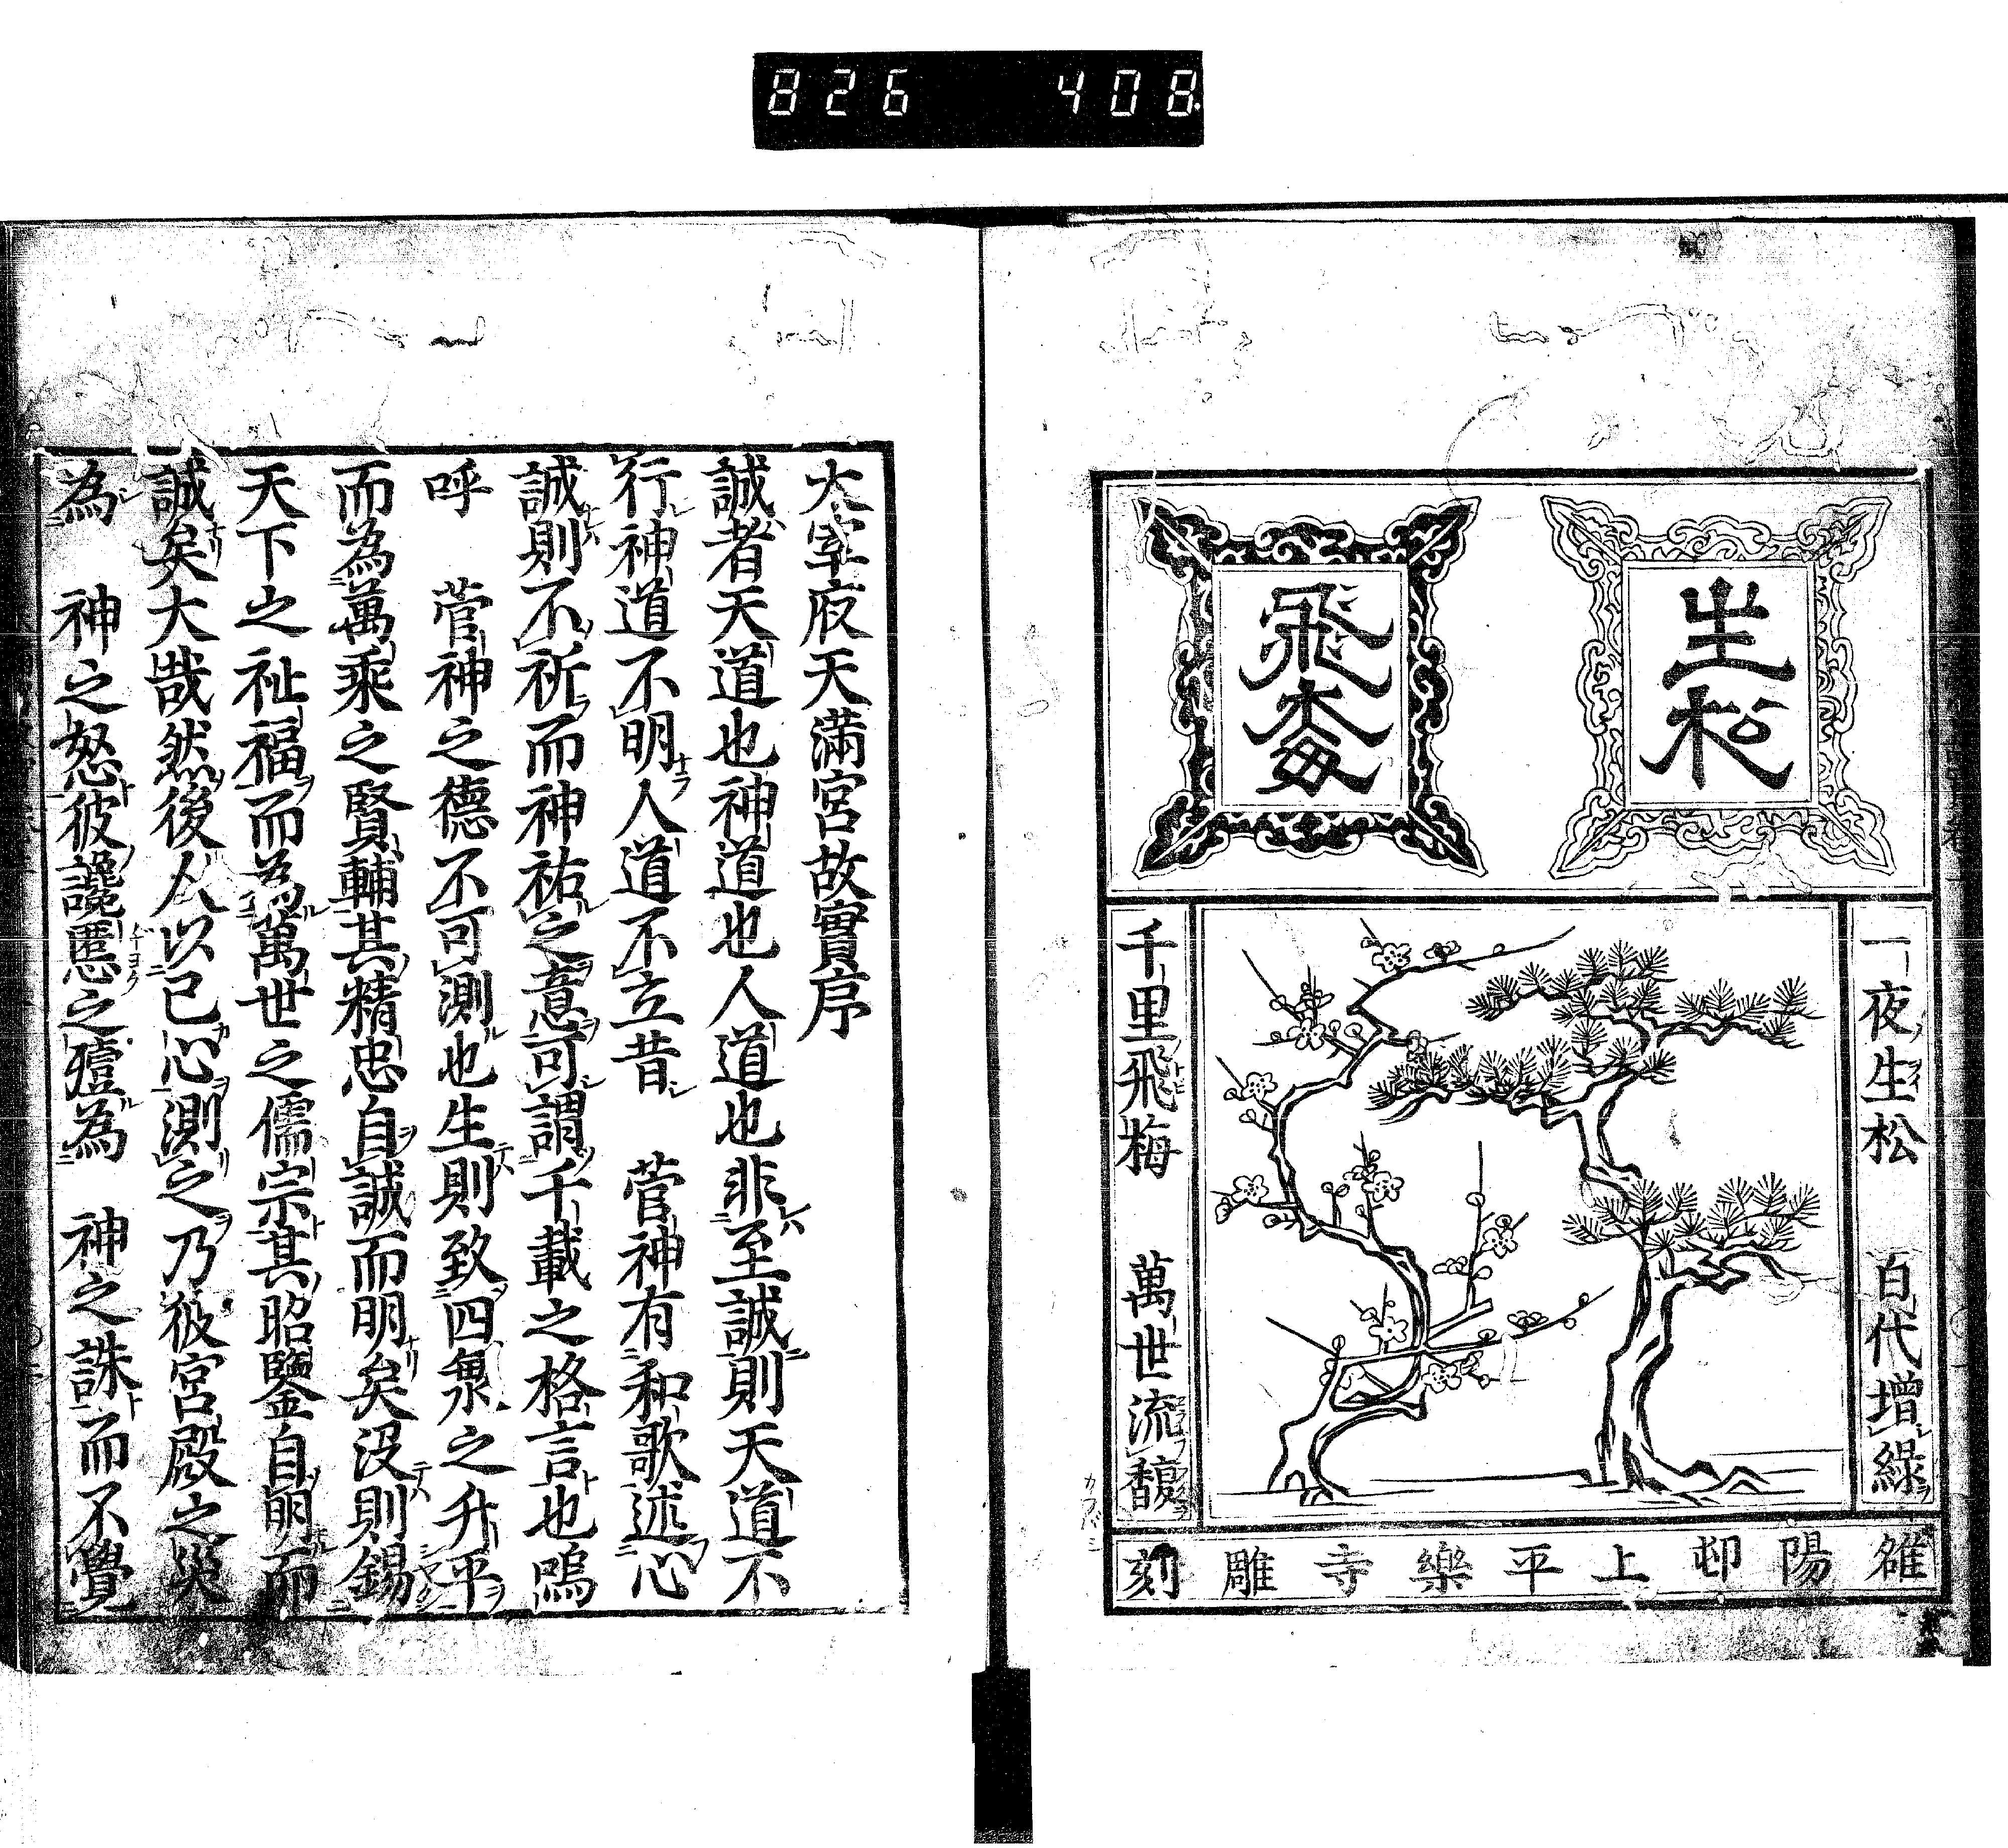 826 408
生松
飛梅
一夜生松 百代增綠
千里飛梅 萬世流馥
雒陽邨上平樂寺雕刻
大宰府天滿宮故實序
誠者天道也神道也人道也非至誠則天道不
行神道不明人道不立昔 菅神有和歌述心
誠則不祈而神祐之意可謂千載之格言也嗚
呼 菅神之德不可測也生則致四衆之升平
而為萬乘之賢輔其精忠自誠而明矣沒則錫
天下之祉福而為萬世之儒宗其昭鑒自明而
誠矣大哉然後人以己心測之乃彼宮殿之災
為 神之怒彼讒慝之殪為 神之誅而不覺